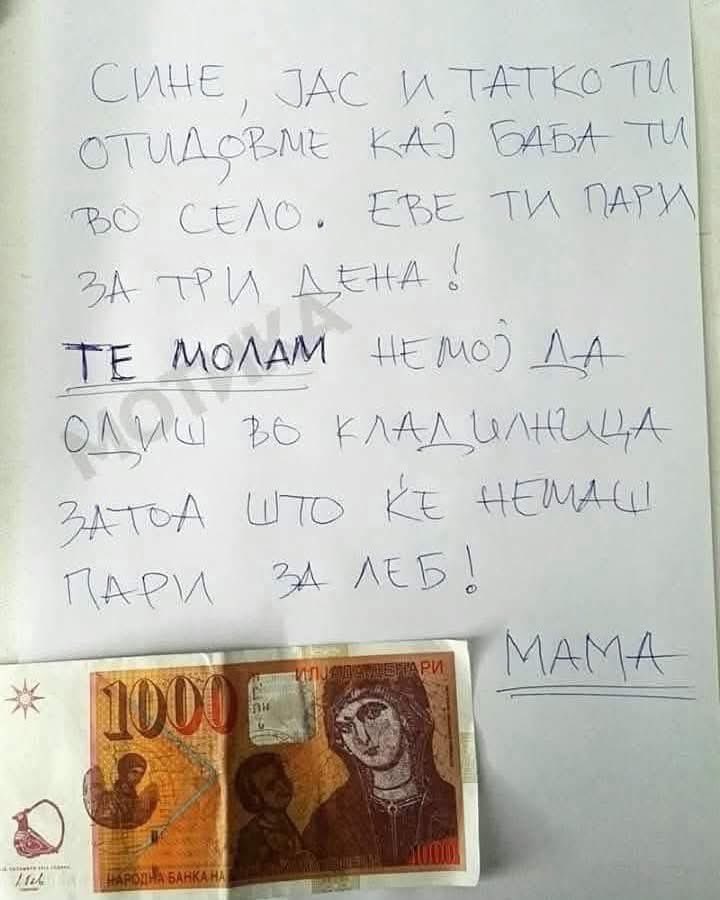 СИНЕ, ЈАС И ТАТКО ТИ
ОТИДОВМЕ КАЈ БАБА ТИ
ВО СЕЛО. ЕВЕ ТИ ПАРИ
ЗА ТРИ ДЕНА!
ТЕ МОЛАМ НЕМОЈ ДА
ОДИШ ВО КЛАДИЛНИЦА
ЗАТОА ШТО ЌЕ НЕМАШ
ПАРИ ЗА ЛЕБ!
МАМА
МОТИКА
ИЛЈАДА ДЕНАРИ
1000
1000
НАРОДНА БАНКА НА